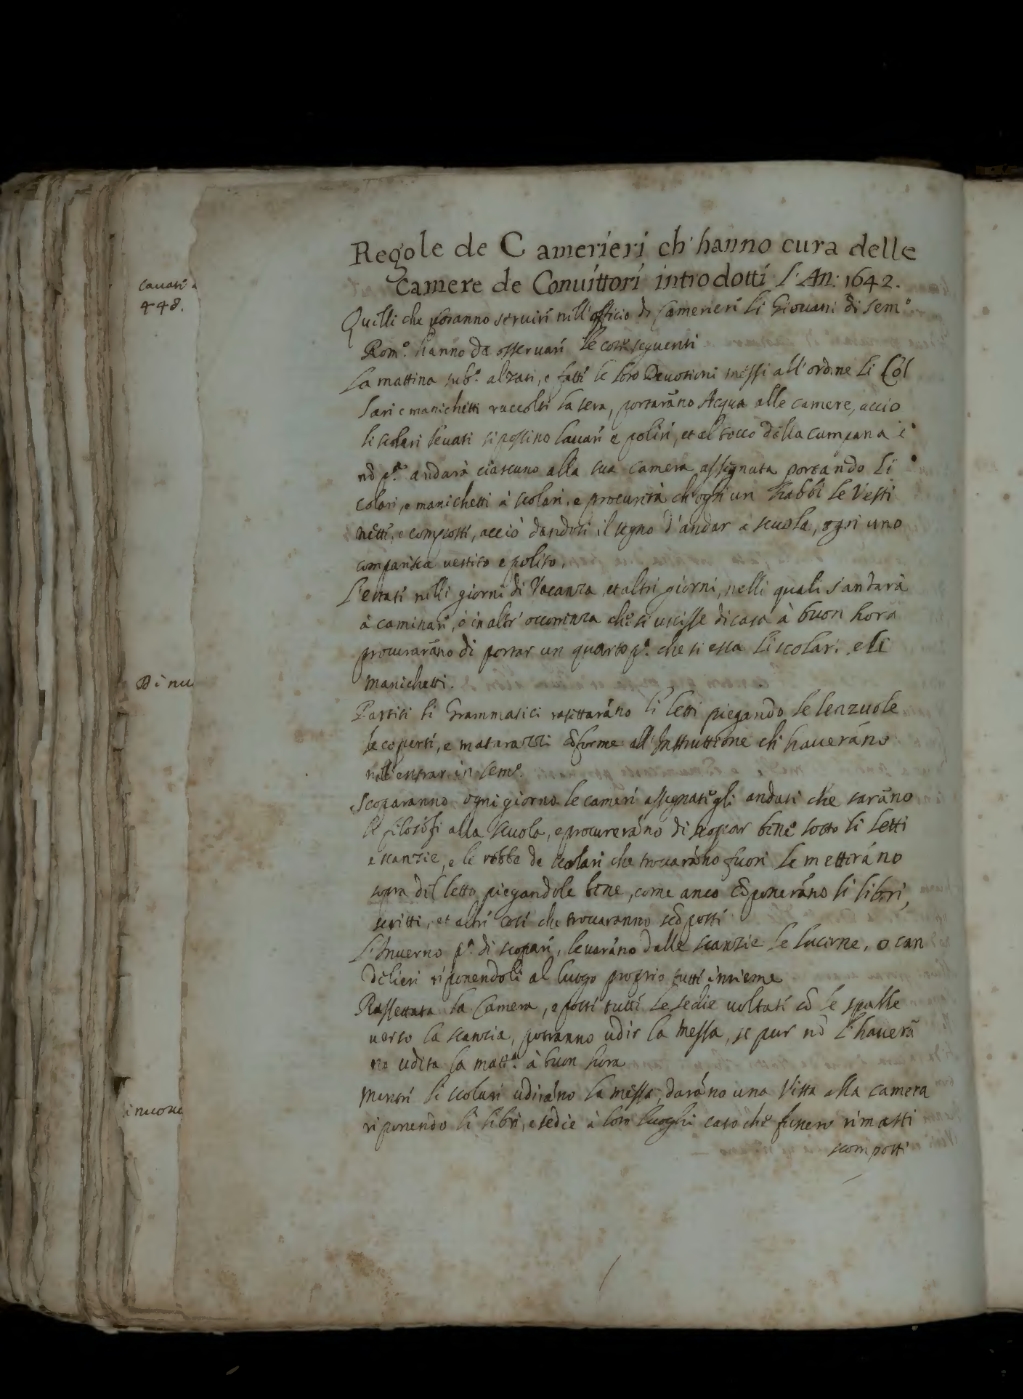 Regole de Camerieri ch'hanno cura delle
Camere de Convittori introdotti l'An: 1642.
Quelli che voranno servire nell'officio di Camerieri li Giovani di Sem.º
Rom.º hanno da osservare le cose seguenti
La mattina sub.º alzati, e fatti le loro Devotioni messi all'ordine li Col
lari e manichetti raccolti la sera, portarãno Acqua alle camere, accio
li scolari levati si possino lavare e polire, et al tocco della campana è
nõ p.ª andarà ciascuno alla sua camera assignata portãndo li
colari, e manichetti à scolari, e procurerà ch'ogn'un habbi le Vesti
nette, e composti, acciò dandosi il segno d'andar a scuola, ogni uno
comparisca vestito e polito.
L'estati nelli giorni di Vacanza et altri giorni, nelli quali s'andarà
à caminare, ò in altr'occorrenza che si uscisse di casa à buon hora
procurarãno di portar un quarto p.ª che si esca li scolari e li
manichetti.
Partiti li Grammatici rasettarãno li letti piegando le lenzuole
le coperti, e matarazzi cõforme all'Instruttione ch'haverãno
nell'entrar in Sem.º
Scoparanno ogni giorno le camere assignategli andati che sarãno
li filosofi alla scuola, e procurerãno di scopar bene sotto li letti
e scanzie, e le robbe de scolari che trovarãno fuori le metterãno
sopra del letto piegandole bene, come anco cõponerãno li libri,
scritti, et altri cose che trovaranno scõposti
L'Inverno p.ª di scopare, levarãno dalle scanzie le lucerne, o can
delieri riponendoli al luogo proprio tutti insieme
Rassettata la Camera, e posti tutti le sedie voltati cõ le spalle
verso la scanzia, potranno udir la Messa, se pur nõ l'haverã
no udita la matt.ª à buon hora
Mentre li scolari udirãno la messa, darãno una Vista alla camera
riponendo li libri, e sedie à loro luoghi caso che fossero rimasti
scomposti